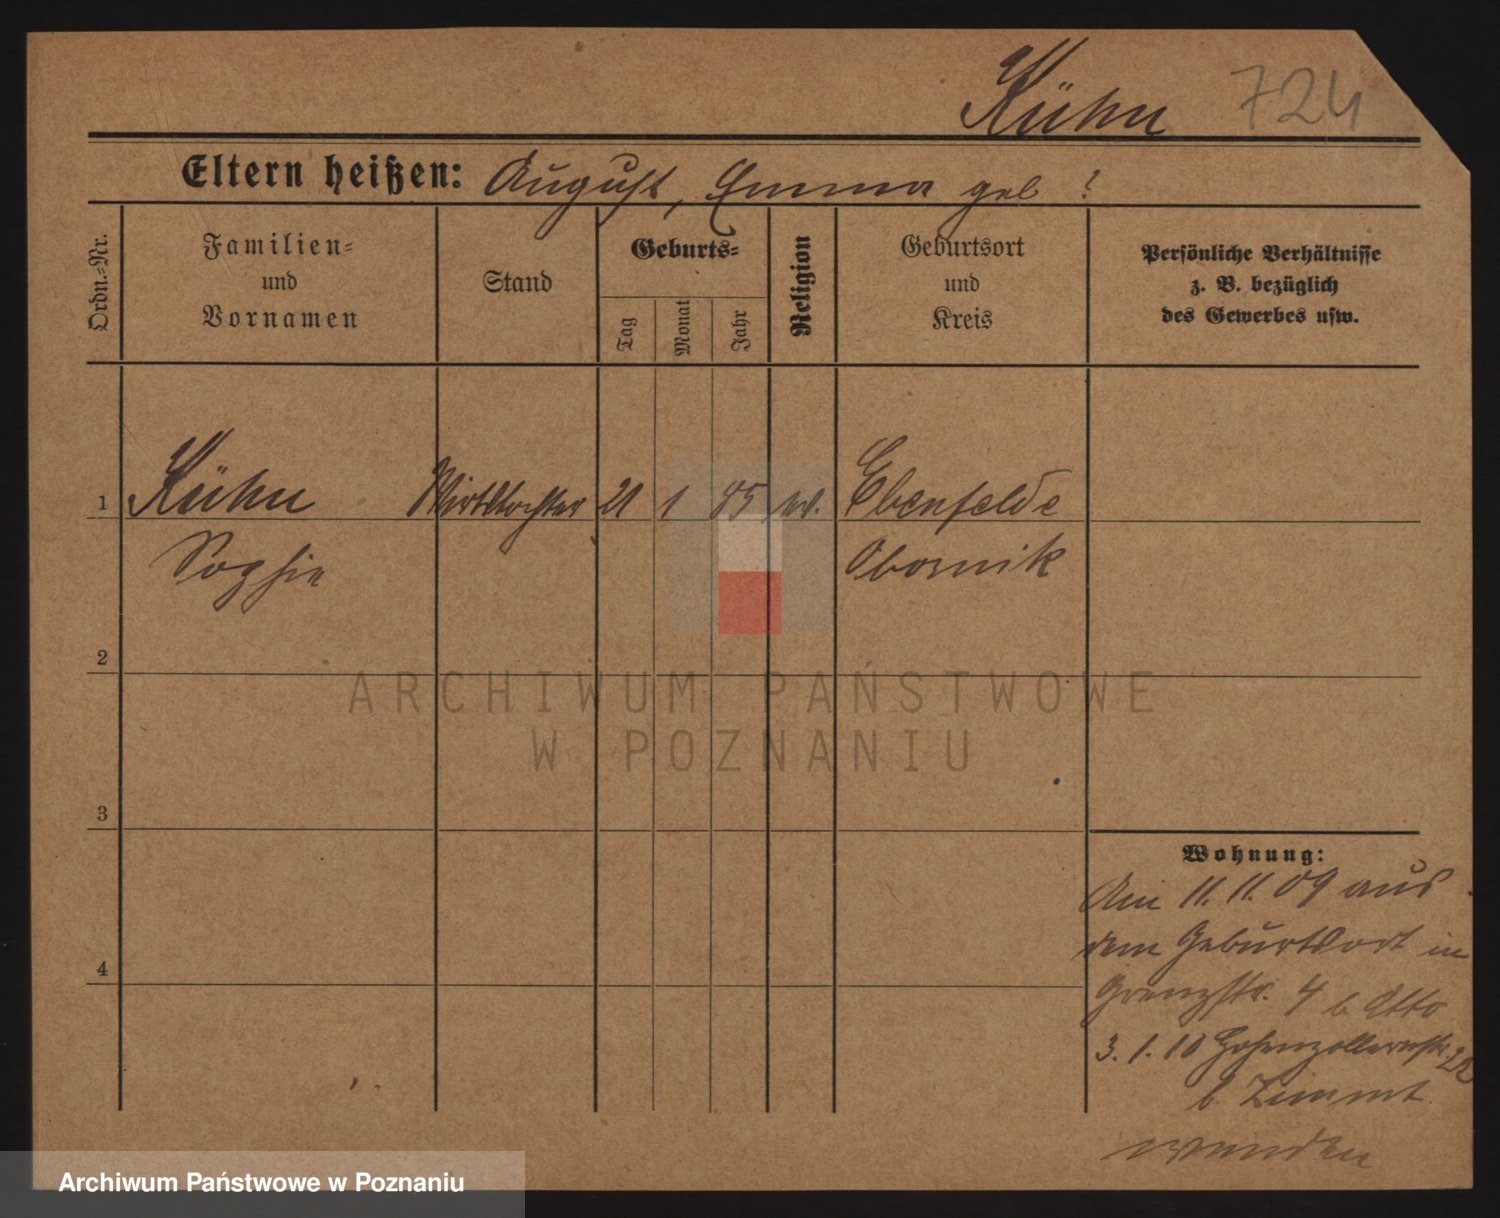 Kühn 724
Eltern heißen: August, Emma geb ?
Ordn.-Nr.
Familien-
und
Vornamen
Stand
Geburts-
Tag
Monat
Jahr
Religion
Geburtsort
und
Kreis
Persönliche Verhältnisse
z. B. bezüglich
des Gewerbes usw.
1 Kühn Wirtstochter 21 1 85 ev. Ebenfelde
Sophie Obornik
2
3
4
Wohnung:
Am 11.11.09 aus
dem Geburtsort in
Grenzstr. 4 b Otto
3.1.10 Hohenzollernstr. 22
b Zimmt
wenden
ARCHIWUM PAŃSTWOWE
W POZNANIU
Archiwum Państwowe w Poznaniu